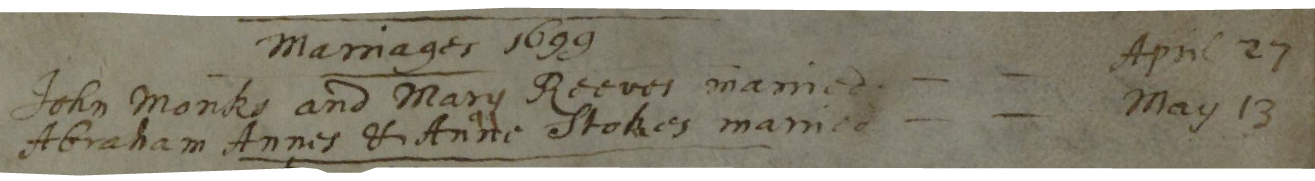 Marriages 1699
John Monks and Mary Reeves married. — — April 27
Abraham Annes & Anne Stokes married — — May 13